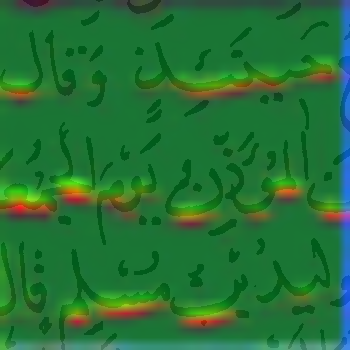 حينئذ وقال
المؤذن يوم الجمعة
وليد بن مسلم قال